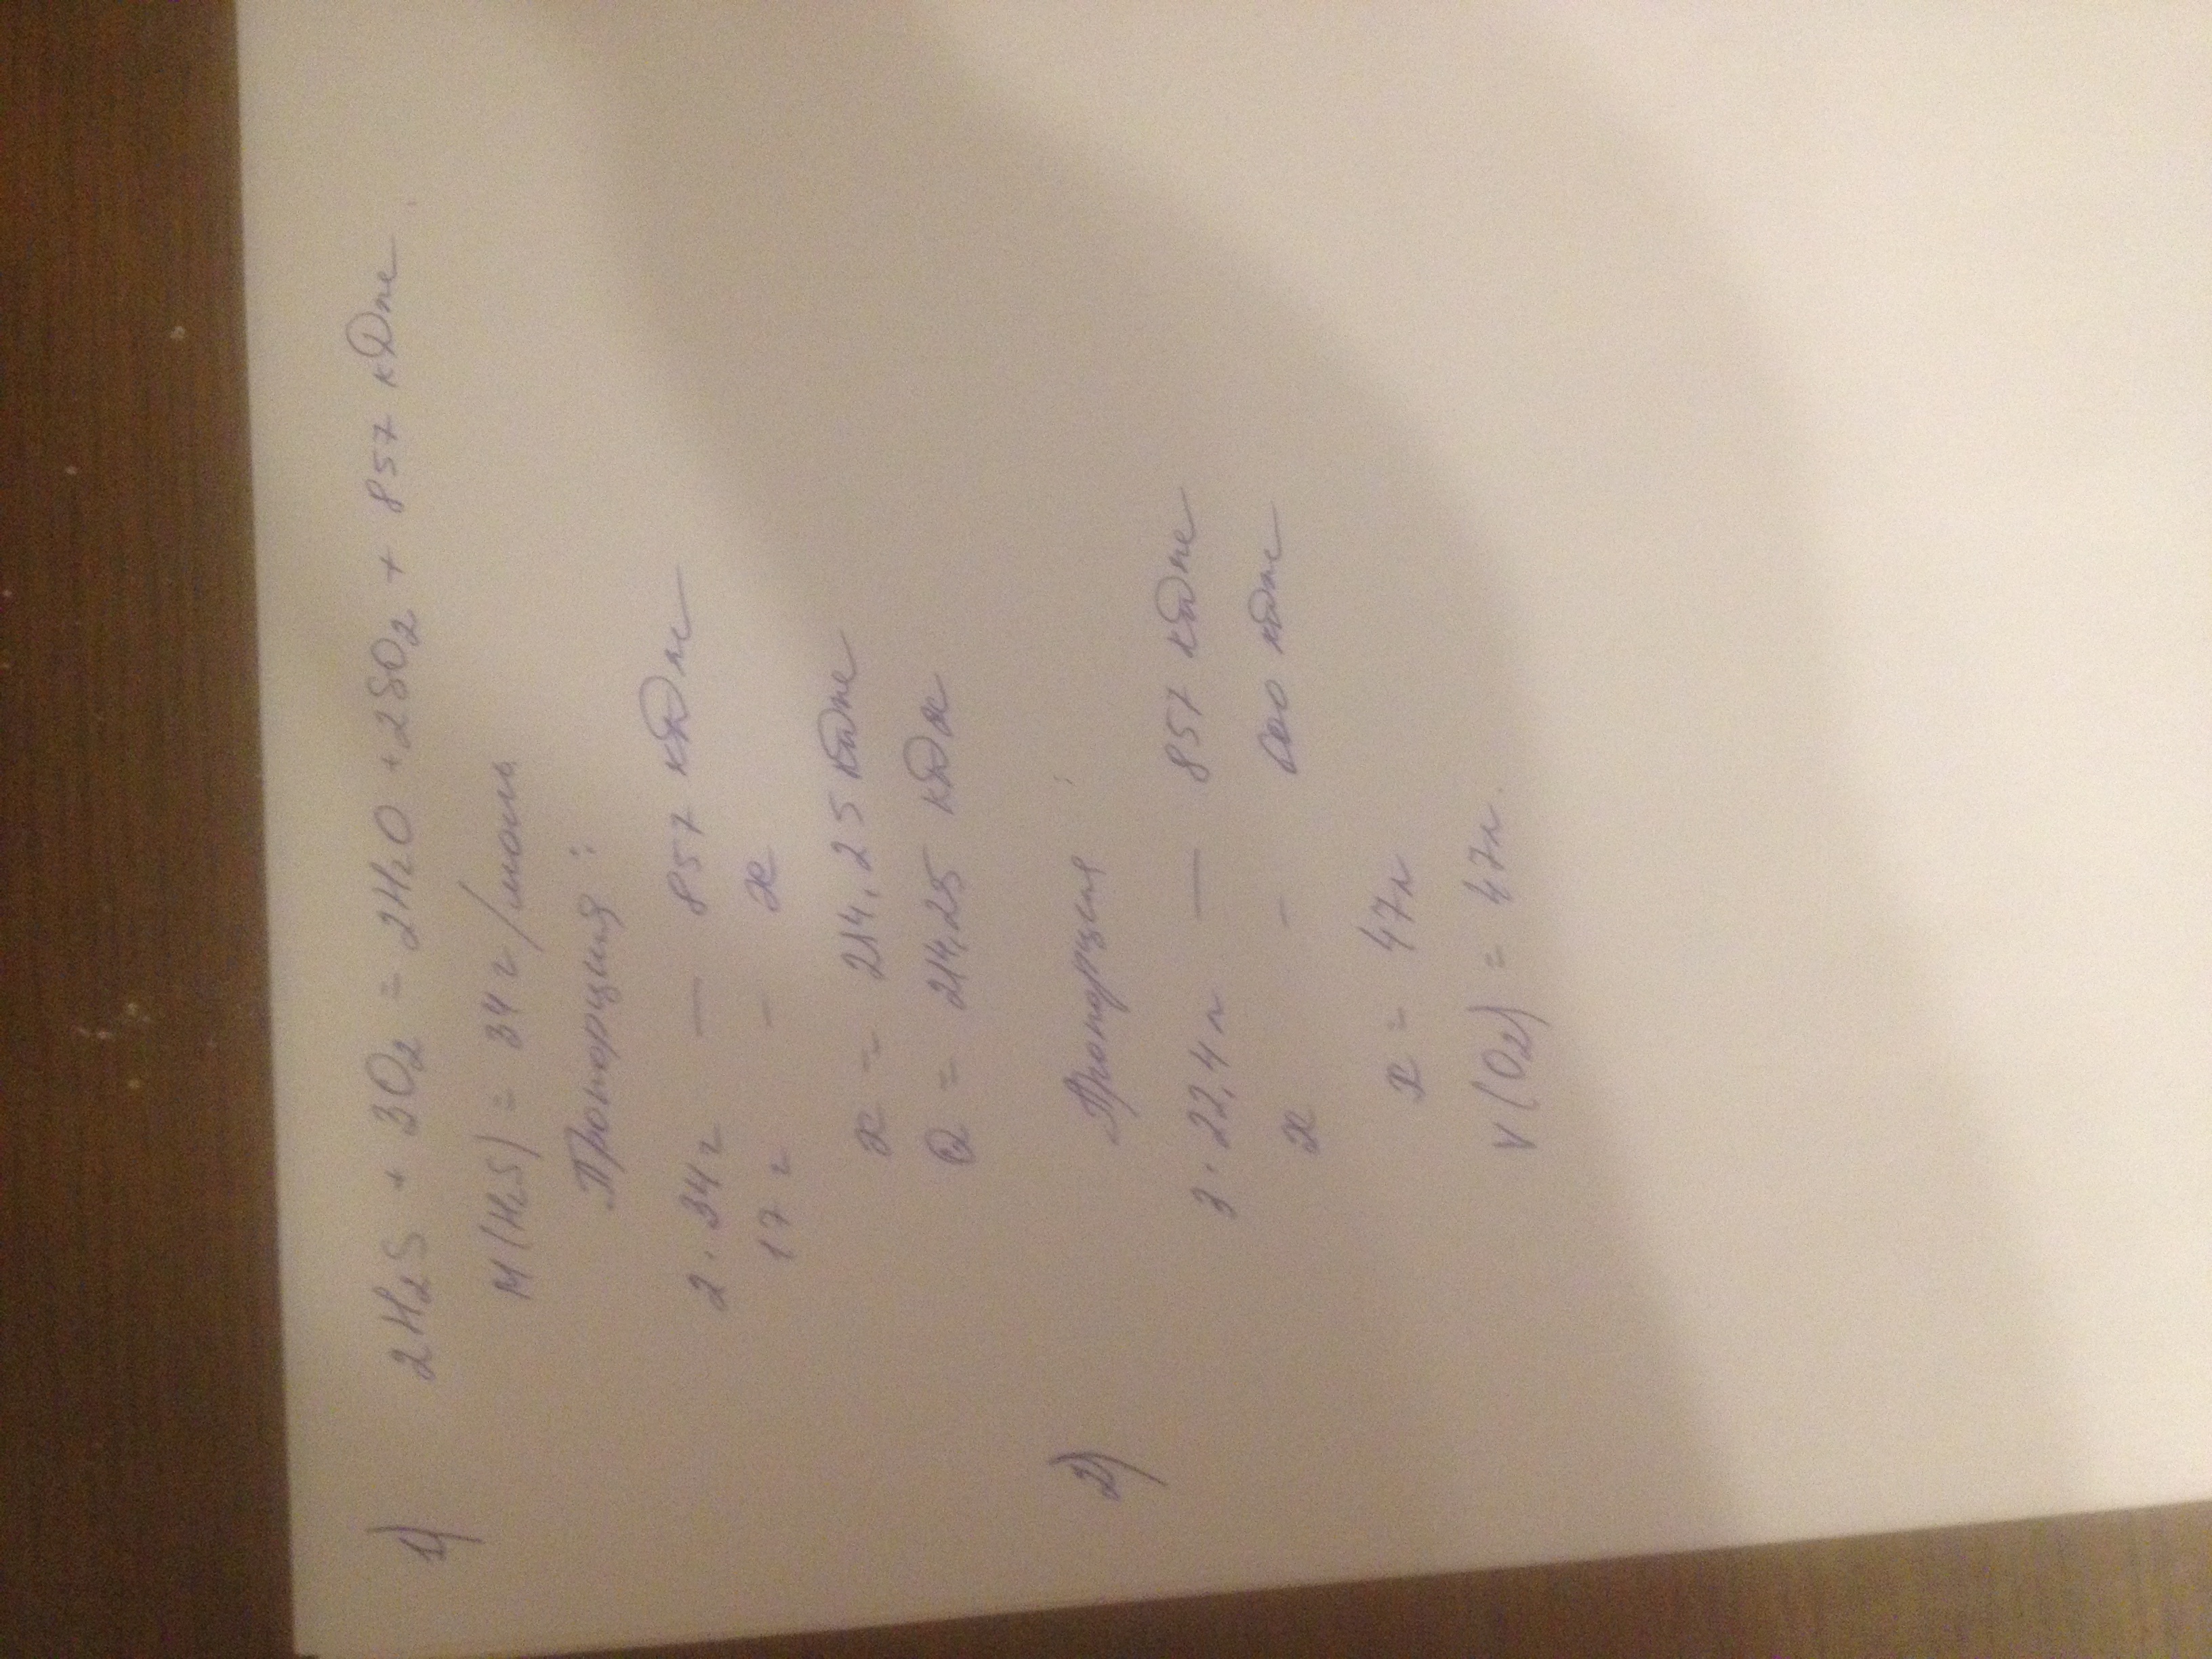 1) 2H₂S + 3O₂ = 2H₂O + 2SO₂ + 857 кДж.
M(H₂S) = 34 г/моль
Пропорция:
2 · 34 г — 857 кДж
17 г - x
x = 214,25 кДж
Q = 214,25 кДж
2) Пропорция:
3 · 22,4 л — 857 кДж
x - кДж
x = 47 л
V(O₂) = 47 л.